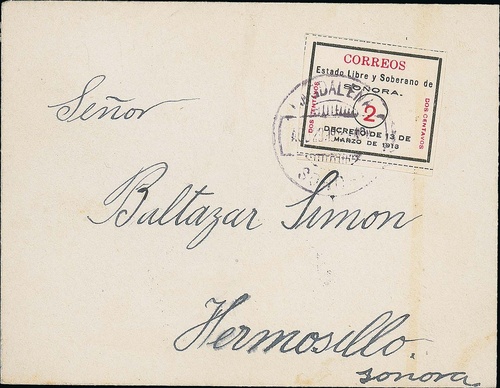 CORREOS
Estado Libre y Soberano de
SONORA.
DOS CENTAVOS
2
DOS CENTAVOS
DECRETO DE 13 DE
MARZO DE 1913
MAGDALENA
Señor
Baltazar Simon
Hermosillo.
Sonora.